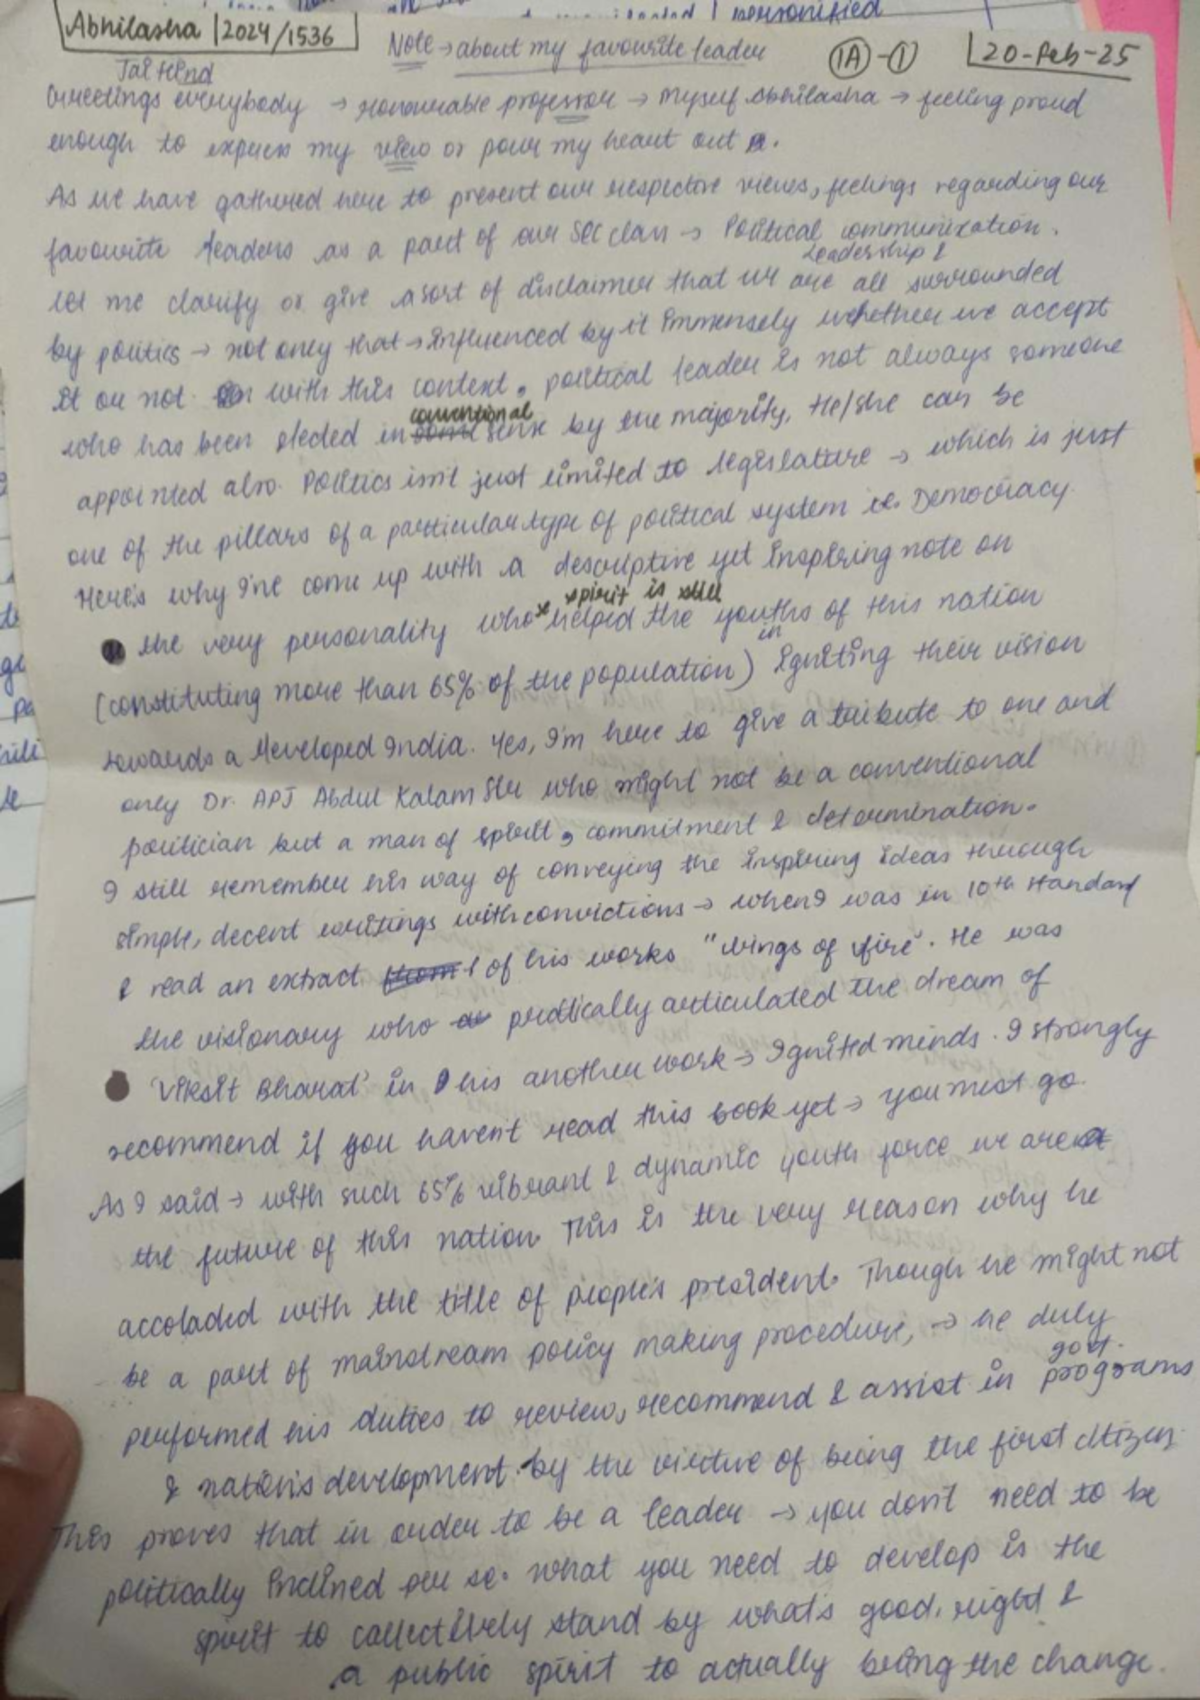 personified
Abhilasha | 2024/1536
Note → about my favourite leader
IA - 1
20-Feb-25
Jai Hind
Greetings everybody → honourable professor → Myself Abhilasha → feeling proud
enough to express my view or pour my heart out.
As we have gathered here to present our respective views, feelings regarding our
favourite leaders as a part of our SEC class → Political communication.
Leadership &
Let me clarify or give a sort of disclaimer that we are all surrounded
by politics → not only that → influenced by it immensely whether we accept
it or not. with this context. political leader is not always someone
who has been elected in conventional sense by the majority. He/she can be
appointed also. Politics isn't just limited to legislature → which is just
one of the pillars of a particular type of political system i.e. Democracy.
Here's why I've come up with a descriptive yet inspiring note on
the very personality whose spirit is still helped the youths of this nation
(constituting more than 65% of the population) in igniting their vision
towards a developed India. Yes, I'm here to give a tribute to one and
only Dr. APJ Abdul Kalam Sir who might not be a conventional
politician but a man of spirit, commitment & determination.
I still remember his way of conveying the inspiring ideas through
simple, decent writings with convictions → when I was in 10th standard
I read an extract of his works "wings of fire". He was
the visionary who poetically articulated the dream of
'Viksit Bharat' in his another work → Ignited minds. I strongly
recommend if you haven't read this book yet → you must go.
As I said → with such 65% vibrant & dynamic youth force we are
the future of this nation. This is the very reason why he
accoladed with the title of people's president. Though he might not
be a part of mainstream policy making procedure, → he duly
performed his duties to review, recommend & assist in govt. programs
& nation's development. by the virtue of being the first citizen.
This proves that in order to be a leader → you don't need to be
politically inclined per se. what you need to develop is the
spirit to collectively stand by what's good, right &
a public spirit to actually being the change.